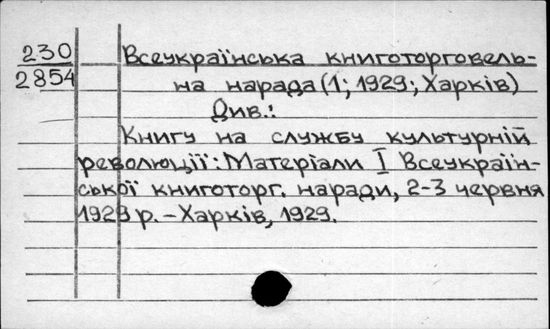 230
2854
Всеукраїнська книготорговель-
на нарада (1; 1929; Харків)
Див.:
Книгу на службу культурній
революції: Матеріали I Всеукраїн-
ської книготорг. наради, 2-3 червня
1929 р. – Харків, 1929.